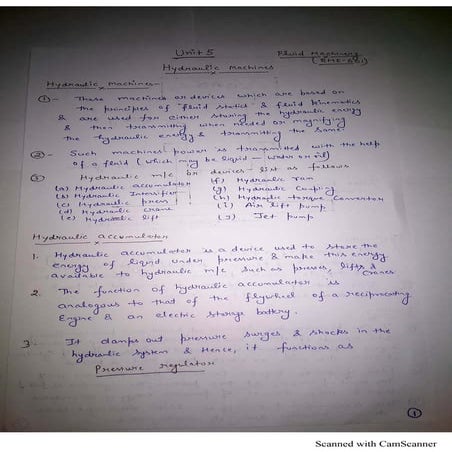 Unit 5
Fluid Machinery
Hydraulic Machines
Hydraulic machines-
(1)- These machines or devices which are based on
the principles of "fluid static" & fluid kinematics
& are used for either storing the hydraulic energy
& then transmitting when needed or magnifying
the hydraulic energy & transmitting the same
(2)- Such machines power is transmitted with the help
of a fluid (which may be liquid - water or oil)
(3) Hydraulic m/c or devices list as follows
(a) Hydraulic accumulator (f) Hydraulic ram
(b) Hydraulic Intensifier (g) Hydraulic Coupling
(c) Hydraulic press (h) Hydraulic torque Convertor
(d) Hydraulic crane (i) Air lift pump
(e) Hydraulic lift (j) Jet pump
Hydraulic accumulator
1. Hydraulic accumulator is a device used to store the
energy of liquid under pressure & make this energy
available to hydraulic m/c, such as presses, lifts &
cranes.
2. The function of hydraulic accumulator is
analogous to that of the flywheel of a reciprocating
Engine & an electric storage battery.
3. It damps out pressure surges & shocks in the
hydraulic system & Hence, it functions as
Pressure regulator
1
Scanned with CamScanner